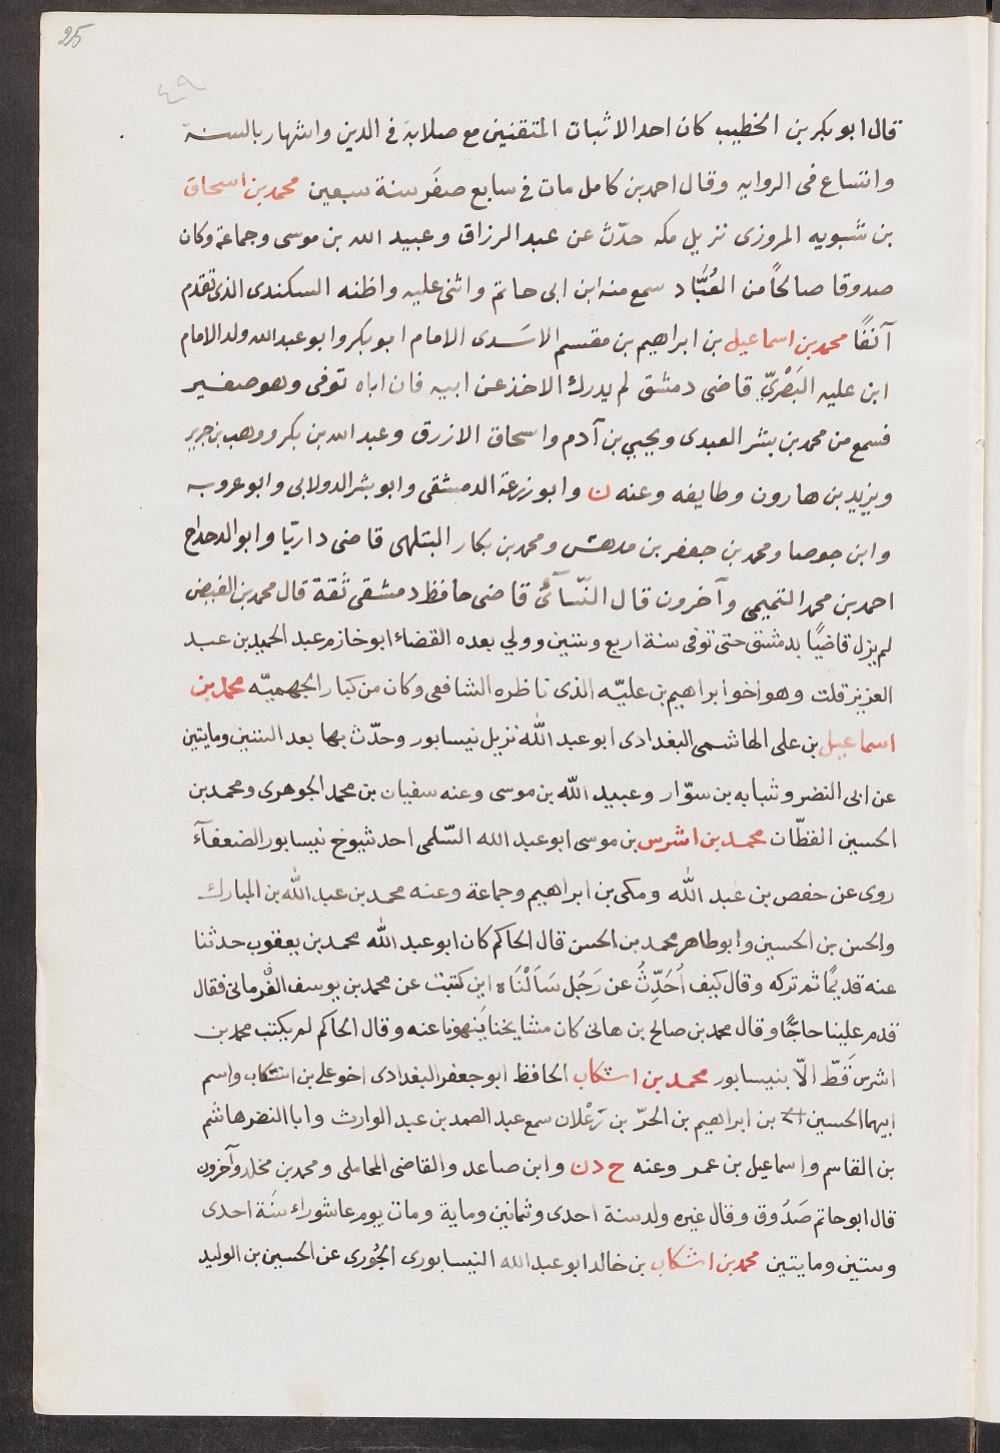 25
٤٩
قال ابو بكر بن الخطيب كان احد الاثبات المتقنين مع صلابة فى الدين واشتهار بالسنة
واتساع فى الروايه وقال احمد بن كامل مات فى سابع صفَر سنة سبعين محمد بن اسحاق
بن شبويه المروزى نزيل مكه حدّث عن عبد الرزاق وعبيد الله بن موسى وجماعة وكان
صدوقا صالحًا من العُبَّاد سمع منه ابن ابى حاتم واثنى عليه واظنه السكندى الذى تقدم
آنفًا محمد بن اسماعيل بن ابراهيم بن مقسم الاسَدى الامام ابو بكر وابو عبد الله ولد الامام
ابن عليه البَصْرِيّ قاضى دمشق لم يدرك الاخذ عن ابيه فان اباه توفى وهو صغير
فسمع من محمد بن بشر العبدى ويحيي بن آدم واسحاق الازرق وعبد الله بن بكر ووهب بن جرير
ويزيد بن هارون وطايفه وعنه ن وابو زرعة الدمشقى وابو بشر الدولابى وابو عروبه
وابن جوصا ومحمد بن جعفر بن ملاس ومحمد بن بكار البتلهى قاضى داريّا وابو الدحداح
احمد بن محمد التميمى وآخرون قال النّسآئى قاضى حافظ دمشقى ثَقة قال محمد بن الفيض
لم يزل قاضيًا بدمشق حتى توفى سنة اربع وستين وولي بعده القضاء ابو خازم عبد الحميد بن عبد
العزيز قلت وهو اخو ابراهيم بن عليّه الذى ناظره الشافعى وكان من كبار الجهميّه محمد بن
اسماعيل بن على الهاشمى البغدادى ابو عبد الله نزيل نيسابور وحدّث بها بعد الستين ومايتين
عن ابى النضر وشبابه بن سوّار وعبيد الله بن موسى وعنه سفيان بن محمد الجوهرى ومحمد بن
الحسين القطّان محمد بن اشرس بن موسى ابو عبد الله السّلمى احد شيوخ نيسابور الضعفآء
روى عن حفص بن عبد الله ومكى بن ابراهيم وجماعة وعنه محمد بن عبد الله بن المبارك
والحسن بن الحسين وابو طاهر محمد بن الحسن قال الحاكم كان ابو عبد الله محمد بن يعقوب حدثنا
عنه قديمًا ثم تركه وقال كيف اُحَدِّثُ عن رَجُل سَاَلْنَاه اين كتبت عن محمد بن يوسف الفُرمانى فقال
قدم علينا حاجًّا وقال محمد بن صالح بن هانى كان مشايخنا يَنهونا عنه وقال الحاكم لم يكتب محمد بن
اشرس قَطّ الّا بنيسابور محمد بن اشكاب الحافظ ابو جعفر البغدادى اخو على بن اشكاب واسم
ابيهما الحسين بن ابراهيم بن الحرّ بن زَعْلان سمع عبد الصمد بن عبد الوارث وابا النضر هاشم
بن القاسم واسماعيل بن عمر وعنه ح د ن وابن صاعد والقاضى المحاملى ومحمد بن مخلد وآخرون
قال ابو حاتم صَدُوق وقال غيره ولد سنة احدى وثمانين وماية ومات يوم عاشوراء سنَة احدى
وستين ومايتين محمد بن اشكاب بن خالد ابو عبد الله النيسابورى الجُورى عن الحسين بن الوليد